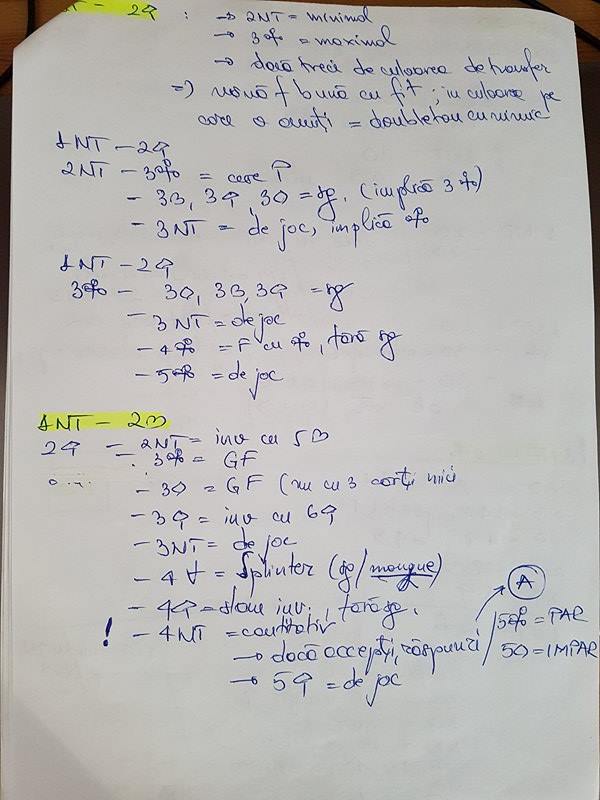 1NT – 2♠ : → 2NT = minimal
→ 3♣ = maximal
→ dacă treci de culoarea de transfer
⇒ mână f bună cu fit; în culoarea pe
care o anunți = doubleton cu nimic
1NT – 2♠
2NT – 3♣ = cere P
– 3♥, 3♠, 3♦ = sg. (implică ♣)
– 3NT = de joc, implică ♣
1NT – 2♠
3♣ – 3♦, 3♥, 3♠ = sg
– 3NT = de joc
– 4♣ = F cu ♣, fără sg
– 5♣ = de joc
1NT – 2♥
2♠ – 2NT = inv cu 5
– 3♣ = GF
– 3♦ = GF (nu cu 3 cărți mici
– 3♠ = inv cu 6♠
– 3NT = de joc
– 4 = Splinter (sg/
– 4♠ = slam inv., fără sg.
! – 4NT = cantitativ
→ dacă accepți, răspunzi / 5♣ = PAR
5♦ = IMPAR
A
→ 5♠ = de joc